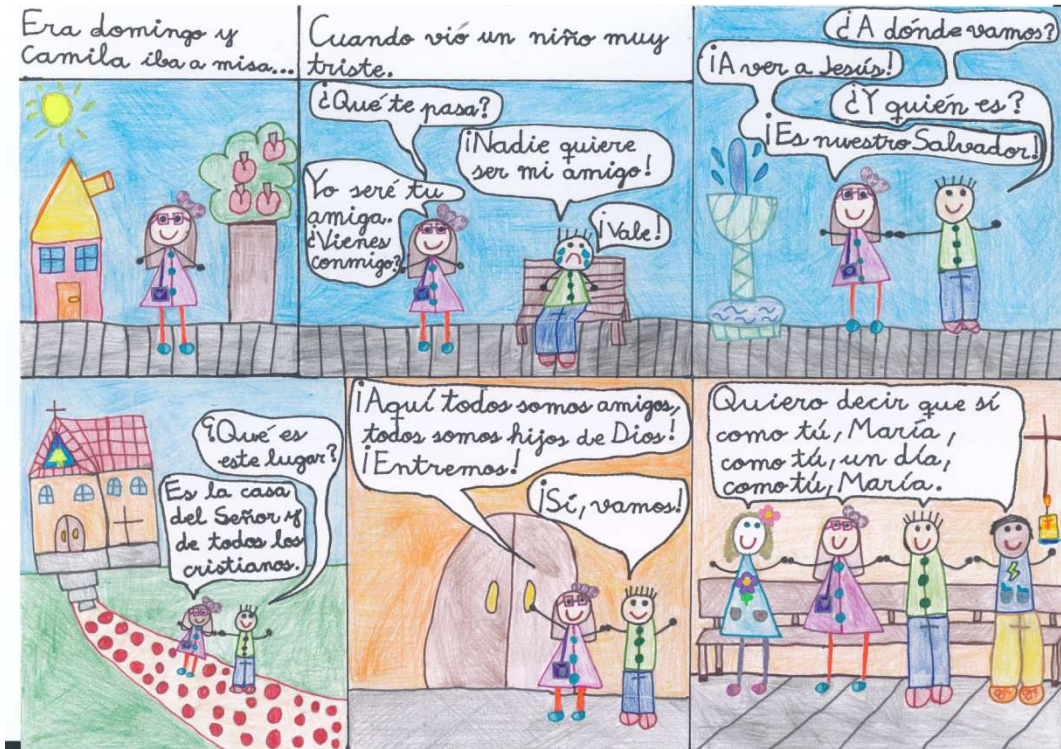 Era domingo y
Camila iba a misa...
Cuando vió un niño muy
triste.
¿Qué te pasa?
¡Nadie quiere
ser mi amigo!
Yo seré tu
amiga.
¿Vienes
conmigo?
¡Vale!
¿A dónde vamos?
¡A ver a Jesús!
¿Y quién es?
¡Es nuestro Salvador!
¿Qué es
este lugar?
Es la casa
del Señor y
de todos los
cristianos.
¡Aquí todos somos amigos,
todos somos hijos de Dios!
¡Entremos!
¡Sí, vamos!
Quiero decir que sí
como tú, María,
como tú, un día,
como tú, María.